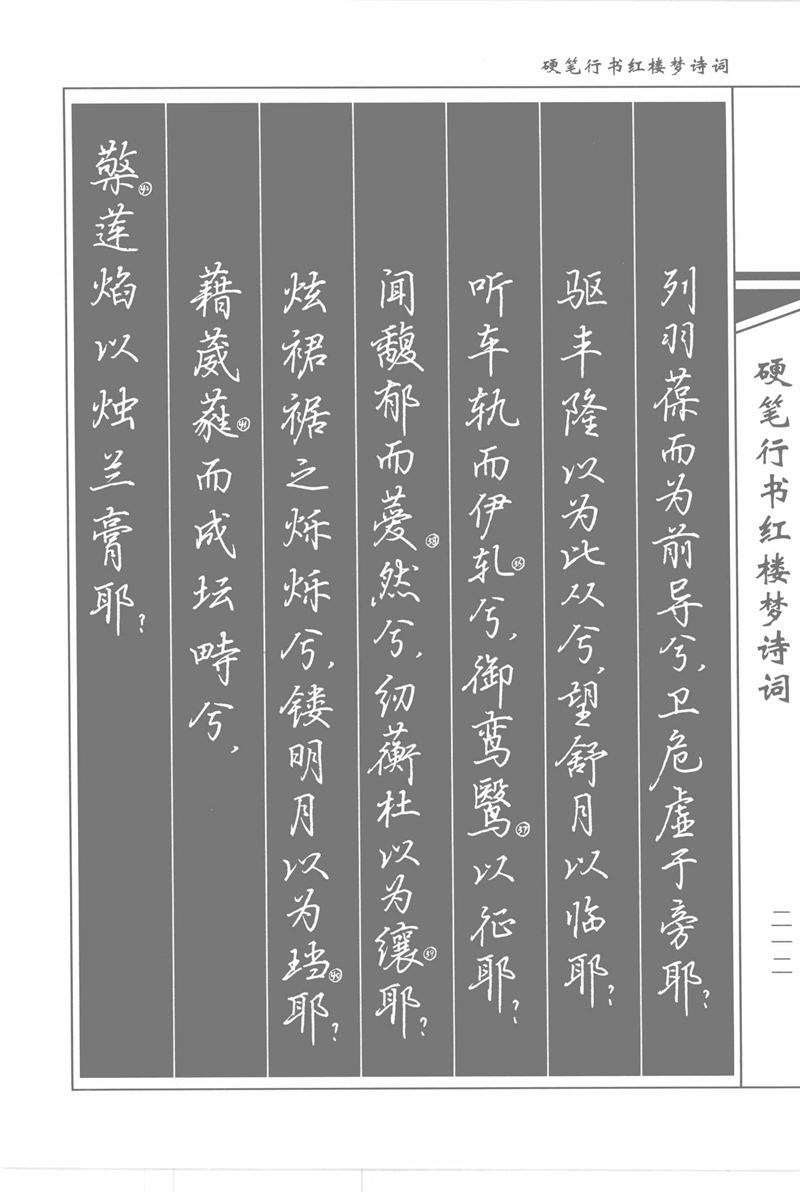 硬笔行书红楼梦诗词
列羽葆而为前导兮，卫危虚于旁耶？
驱丰隆以为比从兮，望舒月以临耶？
听车轨而伊轧㊱兮，御鸾鹥㊲以征耶？
闻馥郁而薆㊳然兮，纫蘅杜以为纕㊴耶？
炫裙裾之烁烁兮，镂明月以为珰㊵耶？
藉葳蕤㊶而成坛畸兮，
檠㊷莲焰以烛兰膏耶？
硬笔行书红楼梦诗词
二一二